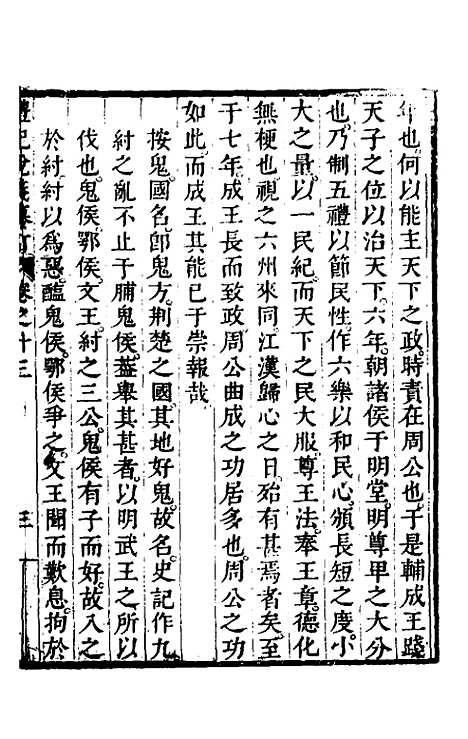 年也何以能主天下之政時責在周公也于是輔成王踐
天子之位以治天下六年朝諸侯于明堂明尊卑之大分
也乃制五禮以節民性作六樂以和民心頒長短之度小
大之量以一民紀而天下之民大服尊王法奉王章德化
無梗也視之六州來同江漢歸心之日殆有甚焉者矣至
于七年成王長而致政周公曲成之功居多也周公之功
如此而成王其能已于崇報哉
按鬼國名卽鬼方荆楚之國其地好鬼故名史記作九
紂之亂不止于脯鬼侯蓋舉其甚者以明武王之所以
伐也鬼侯鄂侯文王紂之三公鬼侯有子而好故入之
於紂紂以爲惡醢鬼侯鄂侯爭之文王聞而歎息拘於
禮記說義纂訂 卷之十三 三